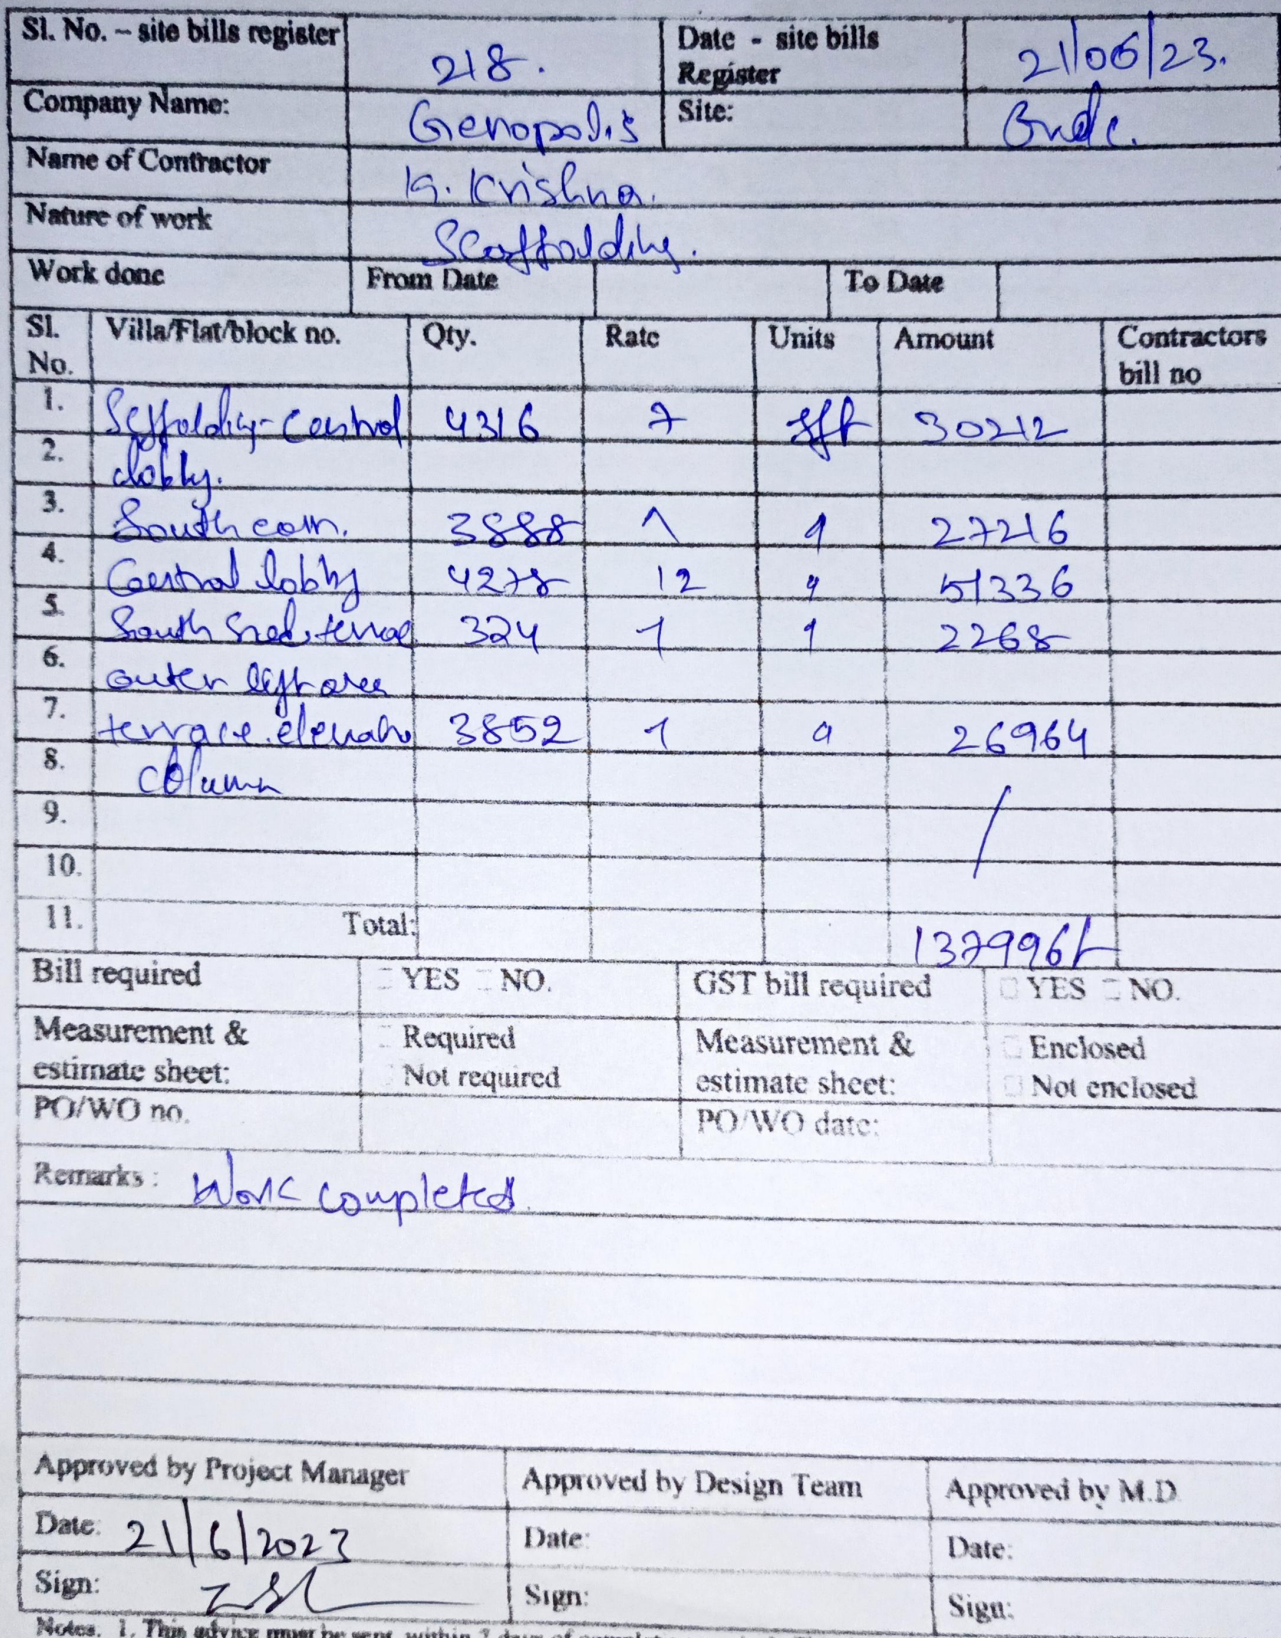 Sl. No. – site bills register 218. Date - site bills Register 21/06/23.
Company Name: Genopolis Site:
Name of Contractor K. Krishna.
Nature of work Scaffolding.
Work done From Date To Date
Sl. No. Villa/Flat/block no. Qty. Rate Units Amount Contractors bill no
1. Scffoldig-Central 4316 7 sft 30212
2. lobby.
3. South 3888 27216
4. Central lobby 4278 12 51336
5. South 324 2268
6. outer left area
7. terrace 3852 26964
8. column
9.
10.
11. Total: 137996/-
Bill required YES NO. GST bill required YES NO.
Measurement & estimate sheet: Required Not required Measurement & estimate sheet: Enclosed Not enclosed
PO/WO no. PO/WO date:
Remarks : Work completed.
Approved by Project Manager Approved by Design Team Approved by M.D
Date: 21/6/2023 Date: Date:
Sign: Sign: Sign:
Notes. 1. This advice must be sent within 7 days of